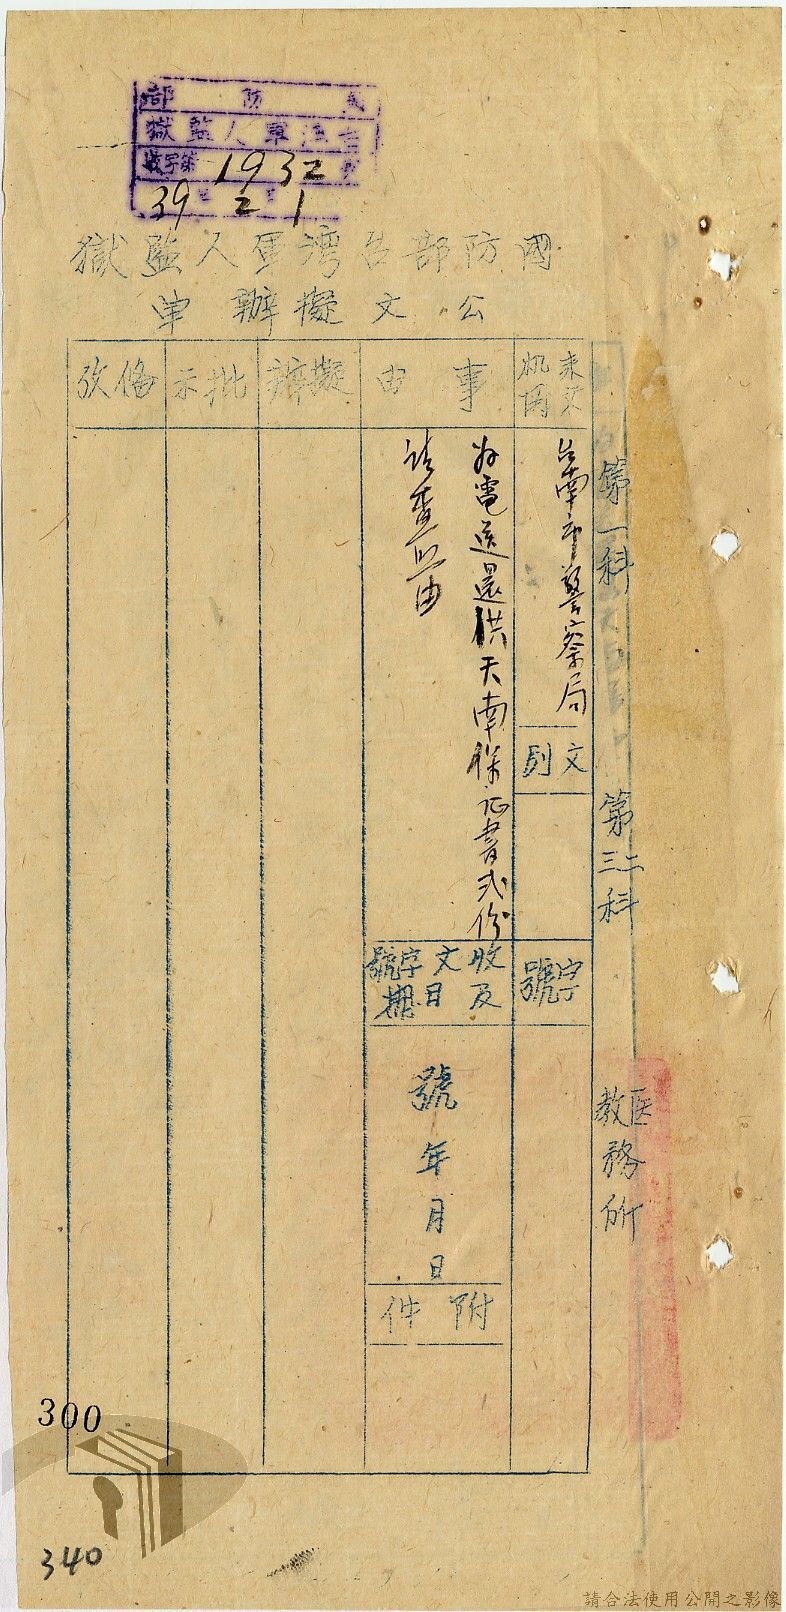 國防部
台灣軍人監獄
收字第1932號
39 2 1
國防部台湾軍人監獄
公文擬辦單
第一科
第二三科
医教務所
來文机関
台南市警察局
文別
字號
事由
为電送還洪天南保证書弍份
請查照由
收文字號及日期
號
年
月
日
附件
擬辦
批示
俻攷
300
340
請合法使用公開之影像